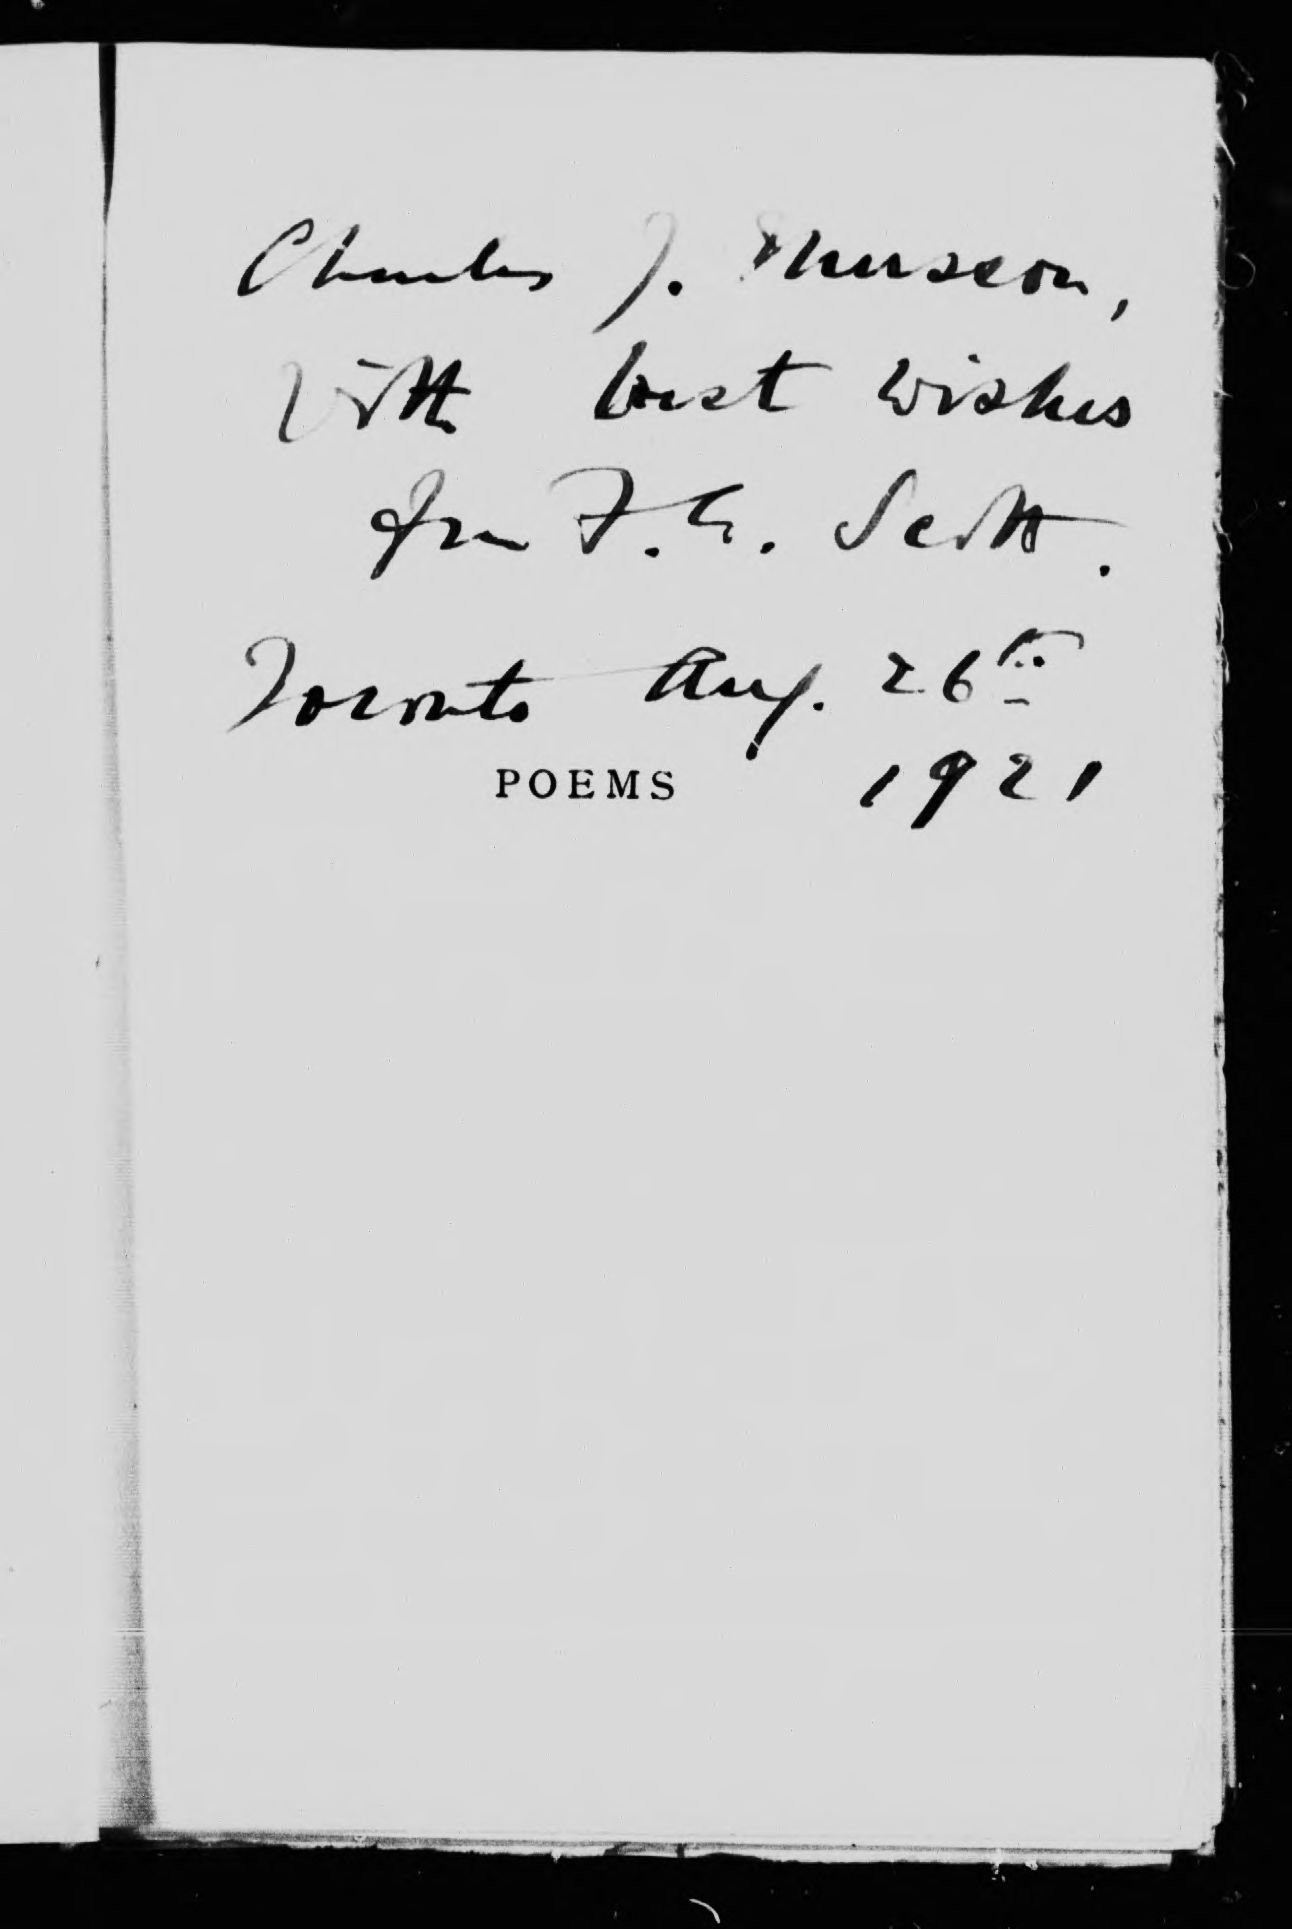 Charles J. Musson,
With best wishes
from F. G. Scott.
Toronto Aug. 26th
1921
POEMS